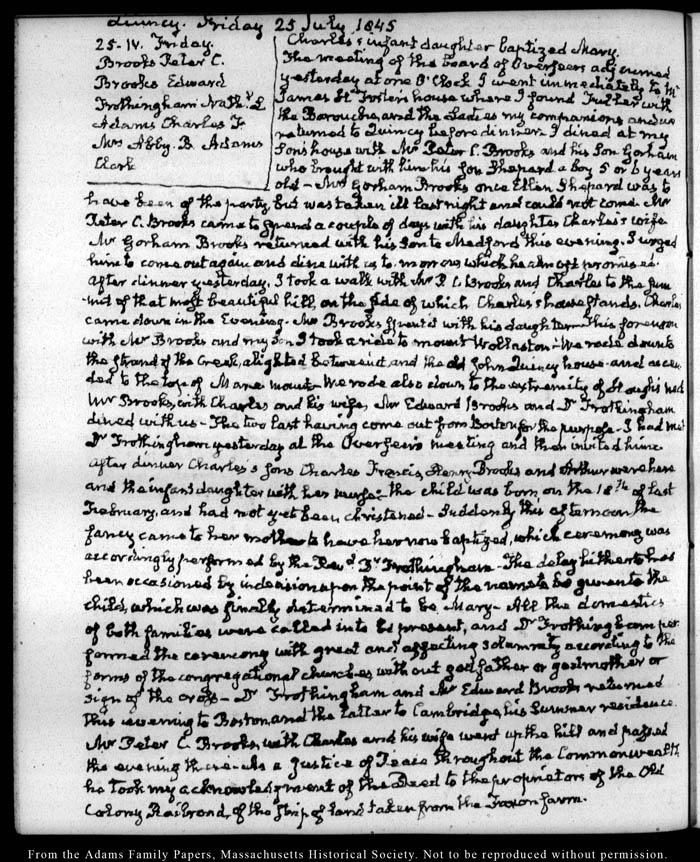 Quincy. Friday 25 July 1845
25. IV. Friday.
Brooks Peter C.
Brooks Edward
Frothingham Nath.l L
Adams Charles F
Mrs Abby. B Adams
Clark
Charles's infant daughter baptized Mary.
The meeting of the board of Overseers adjourned
yesterday at one O'Clock I went immediately to Mr
James H. Foster's house where I found with
the Barouche, and the Ladies my companions and we
returned to Quincy before dinner. I dined at my
Son's house with Mr Peter C. Brooks and his Son Gorham
who brought with him his son Shepard a boy 5 or 6 years
old — Mrs Gorham Brooks once Ellen Shepard was to
have been of the party, but was taken ill last night and could not come. Mr
Peter C. Brooks came to spend a couple of days with his daughter Charles's wife
Mr Gorham Brooks returned with his Son to Medford this evening. I urged
him to come out again and dine with us to-morrow, which he almost promised.
After dinner yesterday, I took a walk with Mr P. C. Brooks and Charles to the sum
-mit of that most beautiful hill, on the side of which Charles's house stands. Charles
came down in the Evening. Mr Brooks with his daughter. This forenoon
with Mr Brooks and my Son I took a ride to mount Wollaston — We rode down to
the strand of the Creek, alighted between it and the old John Quincy house — and ascen
ded to the top of Mare mount — We rode also down to the extremity of Hough's neck
Mr Brooks, with Charles and his wife, Mr Edward Brooks and Dr Frothingham
dined with us — The two last having come out from Boston for the purpose — I had met
Dr Frothingham yesterday at the Overseers meeting and then invited him.
After dinner Charles's Sons Charles Francis, Henry Brooks and Arthur were here
and the infant daughter with her nurse — the child was born, on the 18th of last
February, and had not yet been christened — Suddenly this afternoon the
fancy came to her mother to have her now baptized, which ceremony was
accordingly performed by the Revd Dr Frothingham — The delay hitherto has
been occasioned by indecision upon the point of the name to be given to the
child, which was finally determined to be Mary — All the domestics
of both families were called in to be present, and Dr Frothingham per
formed the ceremony with great and affecting solemnity according to the
forms of the congregational churches without godfather or godmother or
sign of the cross — Dr Frothingham and Mr Edward Brooks returned
this evening to Boston, and the latter to Cambridge, his Summer residence.
Mr Peter C. Brooks, with Charles and his wife went up the hill and passed
the evening there. As a Justice of Peace throughout the Commonwealth
he took my acknowledgment of the Deed to the proprietors of the Old
Colony Railroad, of the strip of land taken from the Faxon farm.
From the Adams Family Papers, Massachusetts Historical Society. Not to be reproduced without permission.